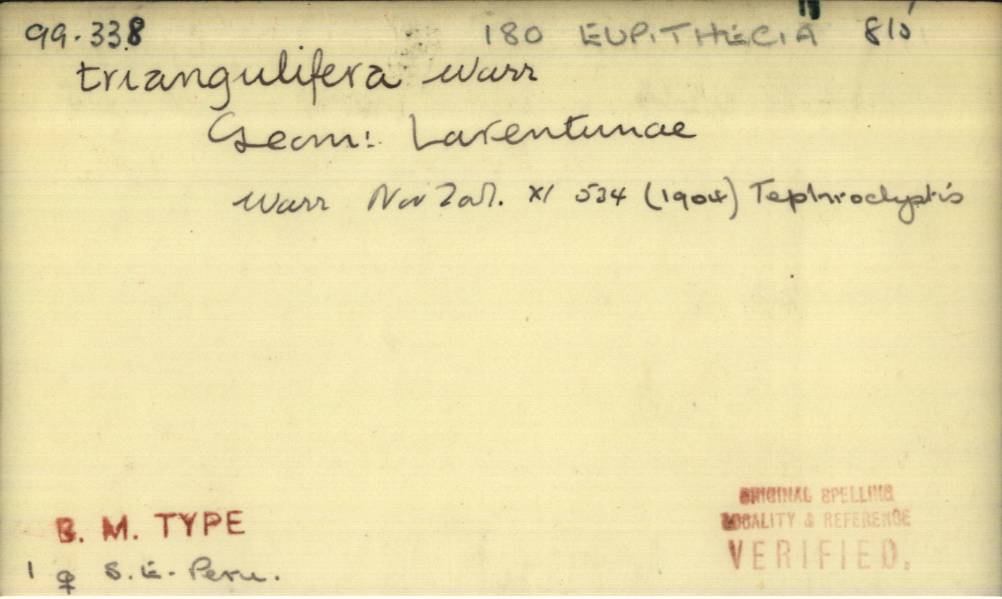 99.338 180 EUPITHECIA
triangulifera Warr
Geom: Larentiinae
Warr Nov Zool. XI 534 (1904) Tephroclyptis
ORIGINAL SPELLING
LOCALITY & REFERENCE
VERIFIED.
B. M. TYPE
1 ♀ S.E. Peru.